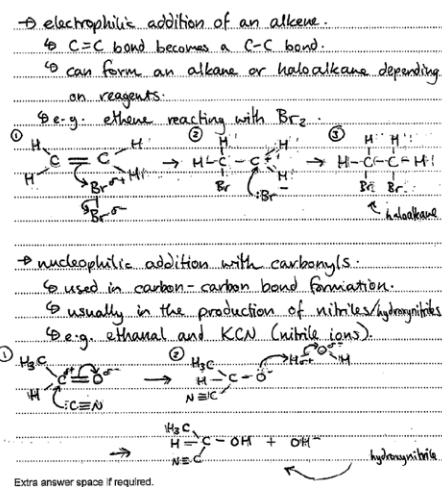 → electrophilic addition of an alkene.
↳ C=C bond becomes a C-C bond.
↳ can form an alkane or haloalkane depending
on reagents.
↳ e.g. ethene reacting with Br₂.
① ② ③
H H H H H H
C = C → H-C-C⁺ → H-C-C-H
H H Br H Br Br
Brδ+ :Br⁻
Brδ- haloalkane
→ nucleophilic addition with carbonyls.
↳ used in carbon-carbon bond formation.
↳ usually in the production of nitriles/hydroxynitriles
↳ e.g. ethanal and KCN (nitrile ions).
① ②
H₃C H₃C Hδ+ Oδ- H
Cδ+ = Oδ- → H-C-O⁻
H :C≡N N≡C
H₃C
→ H-C-OH + OH⁻
N≡C hydroxynitrile
Extra answer space if required.